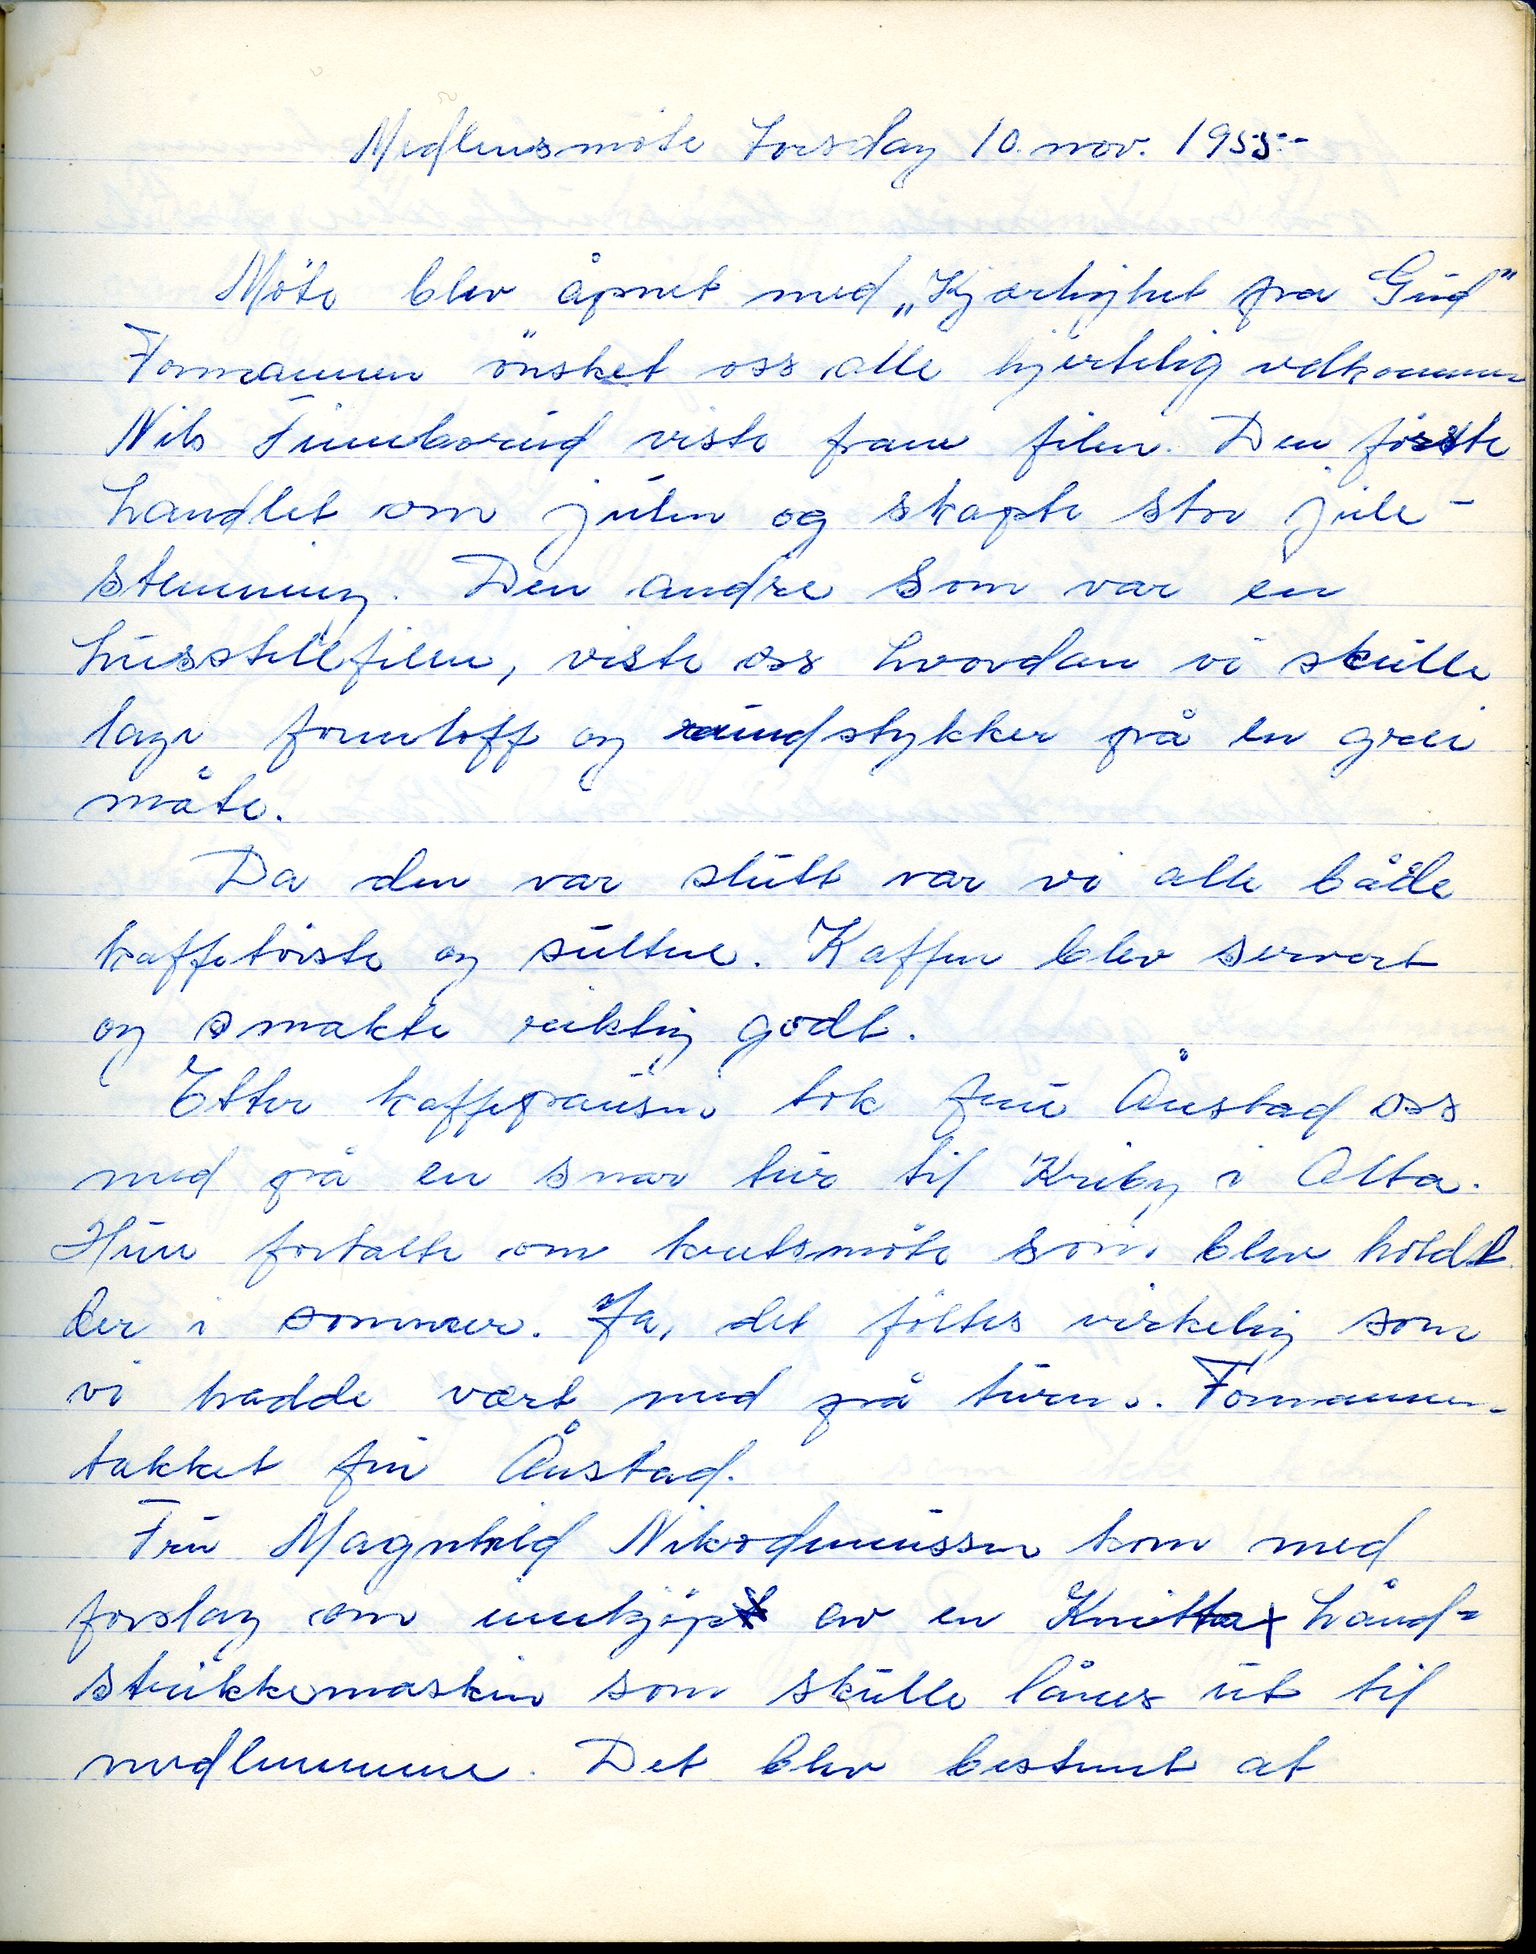 Medlemsmöte torsdag 10. nov. 1955-
Möte blev åpnet med „Kjærlighet fra Gud"
Formannen önsket oss alle hjertelig velkommen
Nils Finnborud viste fram film. Den förste
handlet om julen og skapte stor jule-
stemning. Den andre som var en
husstellfilm, viste oss hvordan vi skulle
lage formloff og rundstykker på en grei
måte.
Da den var slutt var vi alle både
kaffetörste og sultne. Kaffen blev servert
og smakte riktig godt.
Etter kaffepausen tok fru Ånstad oss
med på en snar tur til Kviby i Alta.
Hun fortalte om kretsmöte som blev holdt
der i sommer. Ja, det föltes virkelig som
vi hadde vært med på turen. Formannen
takket fru Ånstad.
Fru Magnhild Nikodemussen kom med
forslag om innkjöp av en Knittax hånd-
strikkemaskin som skulle lånes ut til
medlemmene. Det blev bestemt at